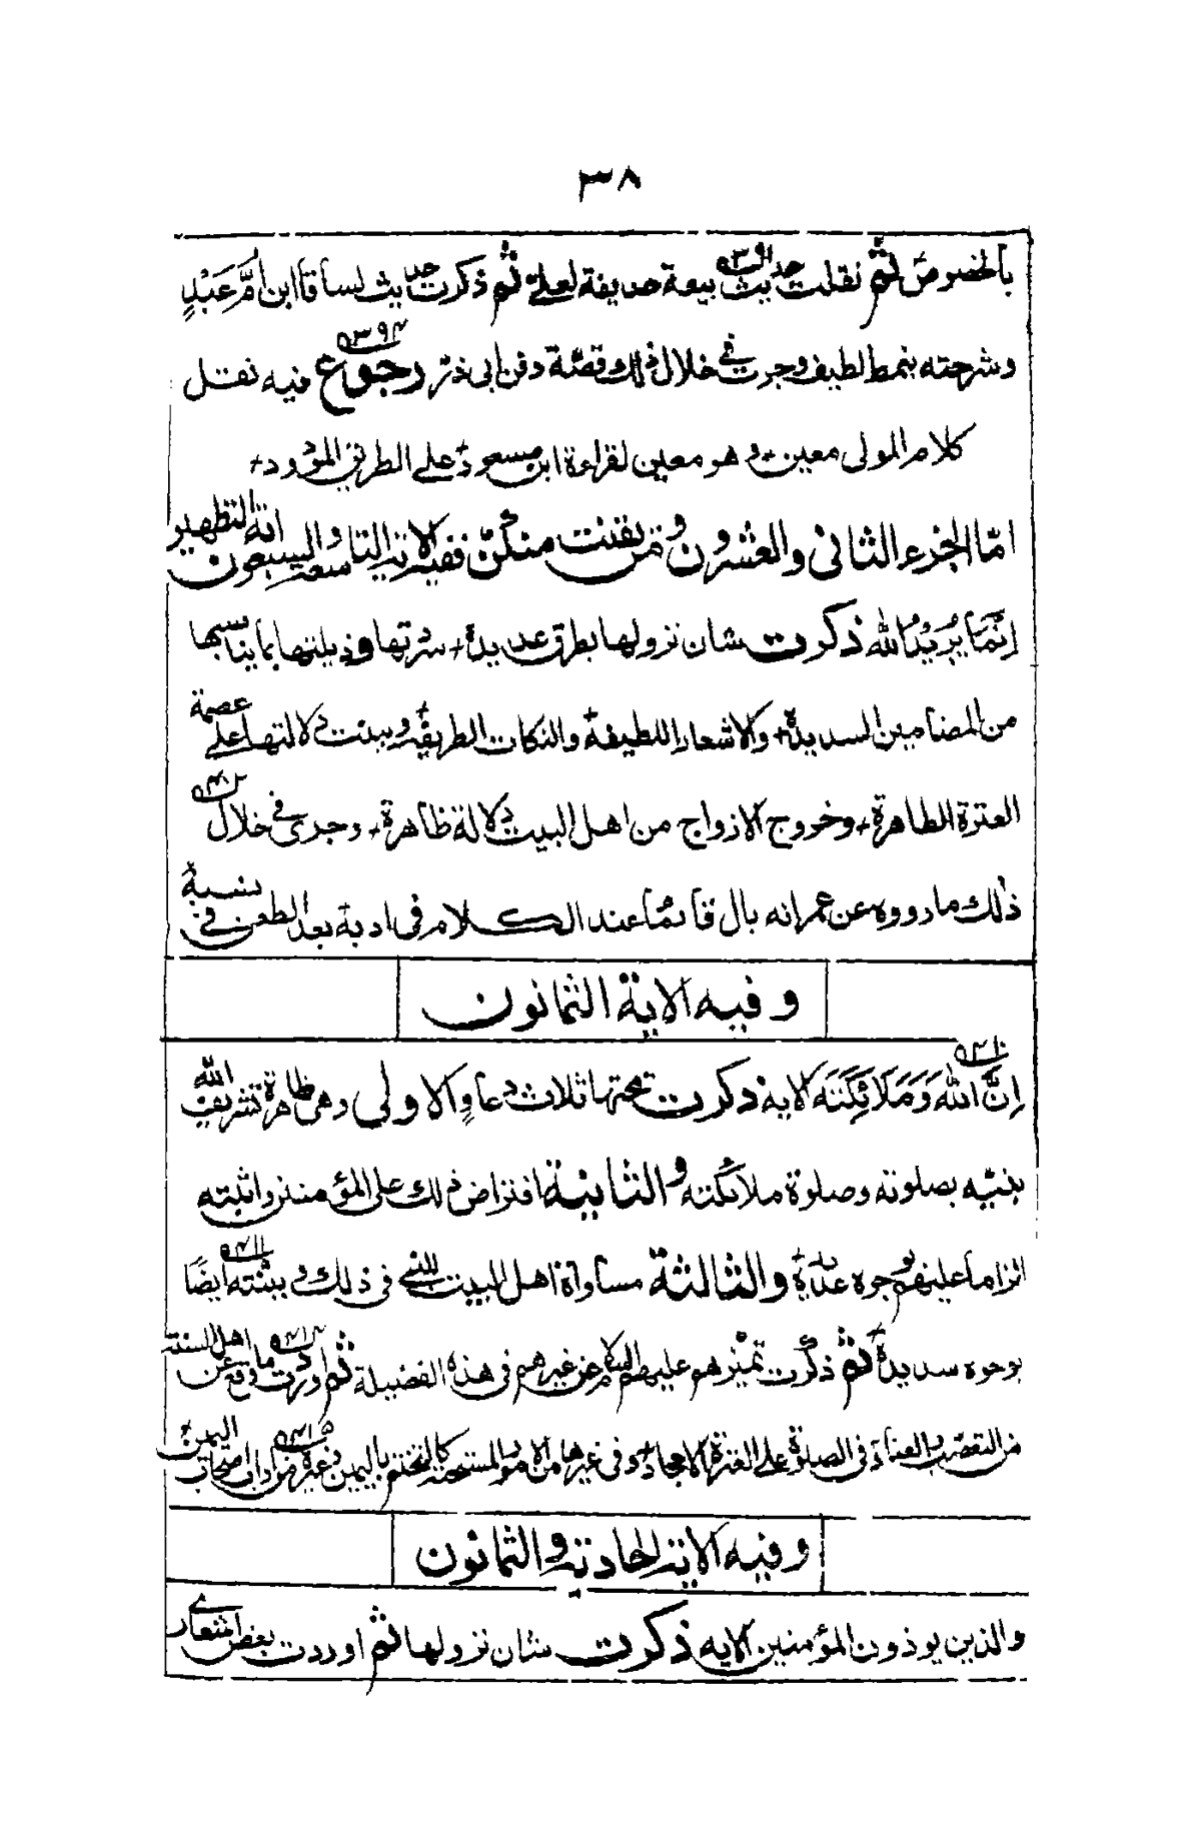 ٣٨
بالخصوص ثم نقلت حديث بيعة حذيفة لعلي ثم ذكرت حديث لساقا ابن أم عَبْدٍ
وشرحته بنمط لطيف وجرت في خلال ذلك وقصّة دفن ابى ذر رجوع فيه نقل
كلام المولى معين + وهو معين لقراءة ابن مسعود + على الطريق المؤود +
امّا الجزء الثانى والعشرون ومن يقنت منكنّ ففيه الاية التاسعة والسبعون اية التطهير
اِنَّمَا يُرِيْدُ اللّٰه ذكرت شان نزولها بطرق عديدة + سردتها وذيلتها بما يناسبها
من المضامين السديدة + والاشعار اللطيفة والنكات الطريفة + وبينت دلالتها على عصمة
العترة الطاهرة + وخروج الازواج من اهل البيت دلالة ظاهرة + وجرى في خلال
ذلك ما رووه عن عمر انه بال قائمًا عند الكلام فى ادبه بعد الطعن في نسبه
وفيه الاية الثمانون
اِنَّ اللهَ وَمَلَائِكَتَه الاية ذكرت تحتها ثلاث دعاوٍ الاولى وهى ظاهرة تشريف الله
نبيّه بصلوته وصلوة ملائكته والثانية افتراض ذلك على المؤمنين واثبته
الزاما عليهم بوجوه عديدة والثالثة مساواة اهل البيت للنبي فى ذلك وبينته ايضًا
بوجوه سديدة ثم ذكرت تميزهم عليهم السلام عن غيرهم فى هذه الفضيلة ثم اوردت ما وقع عن اهل السنة
من التعصّب والعناد فى الصلوة على العترة الامجاد وفى غيرها من الامور المستحبة كالتختم باليمين وغيره من اداب اصحاب اليمين
وفيه الاية الحادية والثمانون
والذين يوذون المؤمنين الاية ذكرت شان نزولها ثم اوردت بعض اشعارى